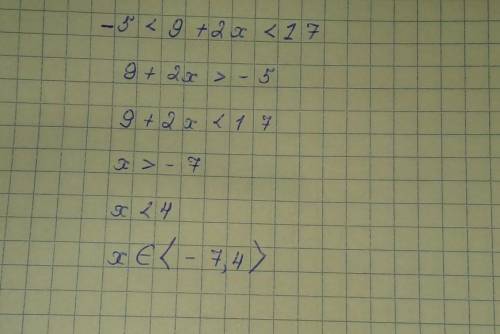 -5 < 9 + 2x < 17
9 + 2x > -5
9 + 2x < 17
x > -7
x < 4
x ∈ ⟨-7,4⟩